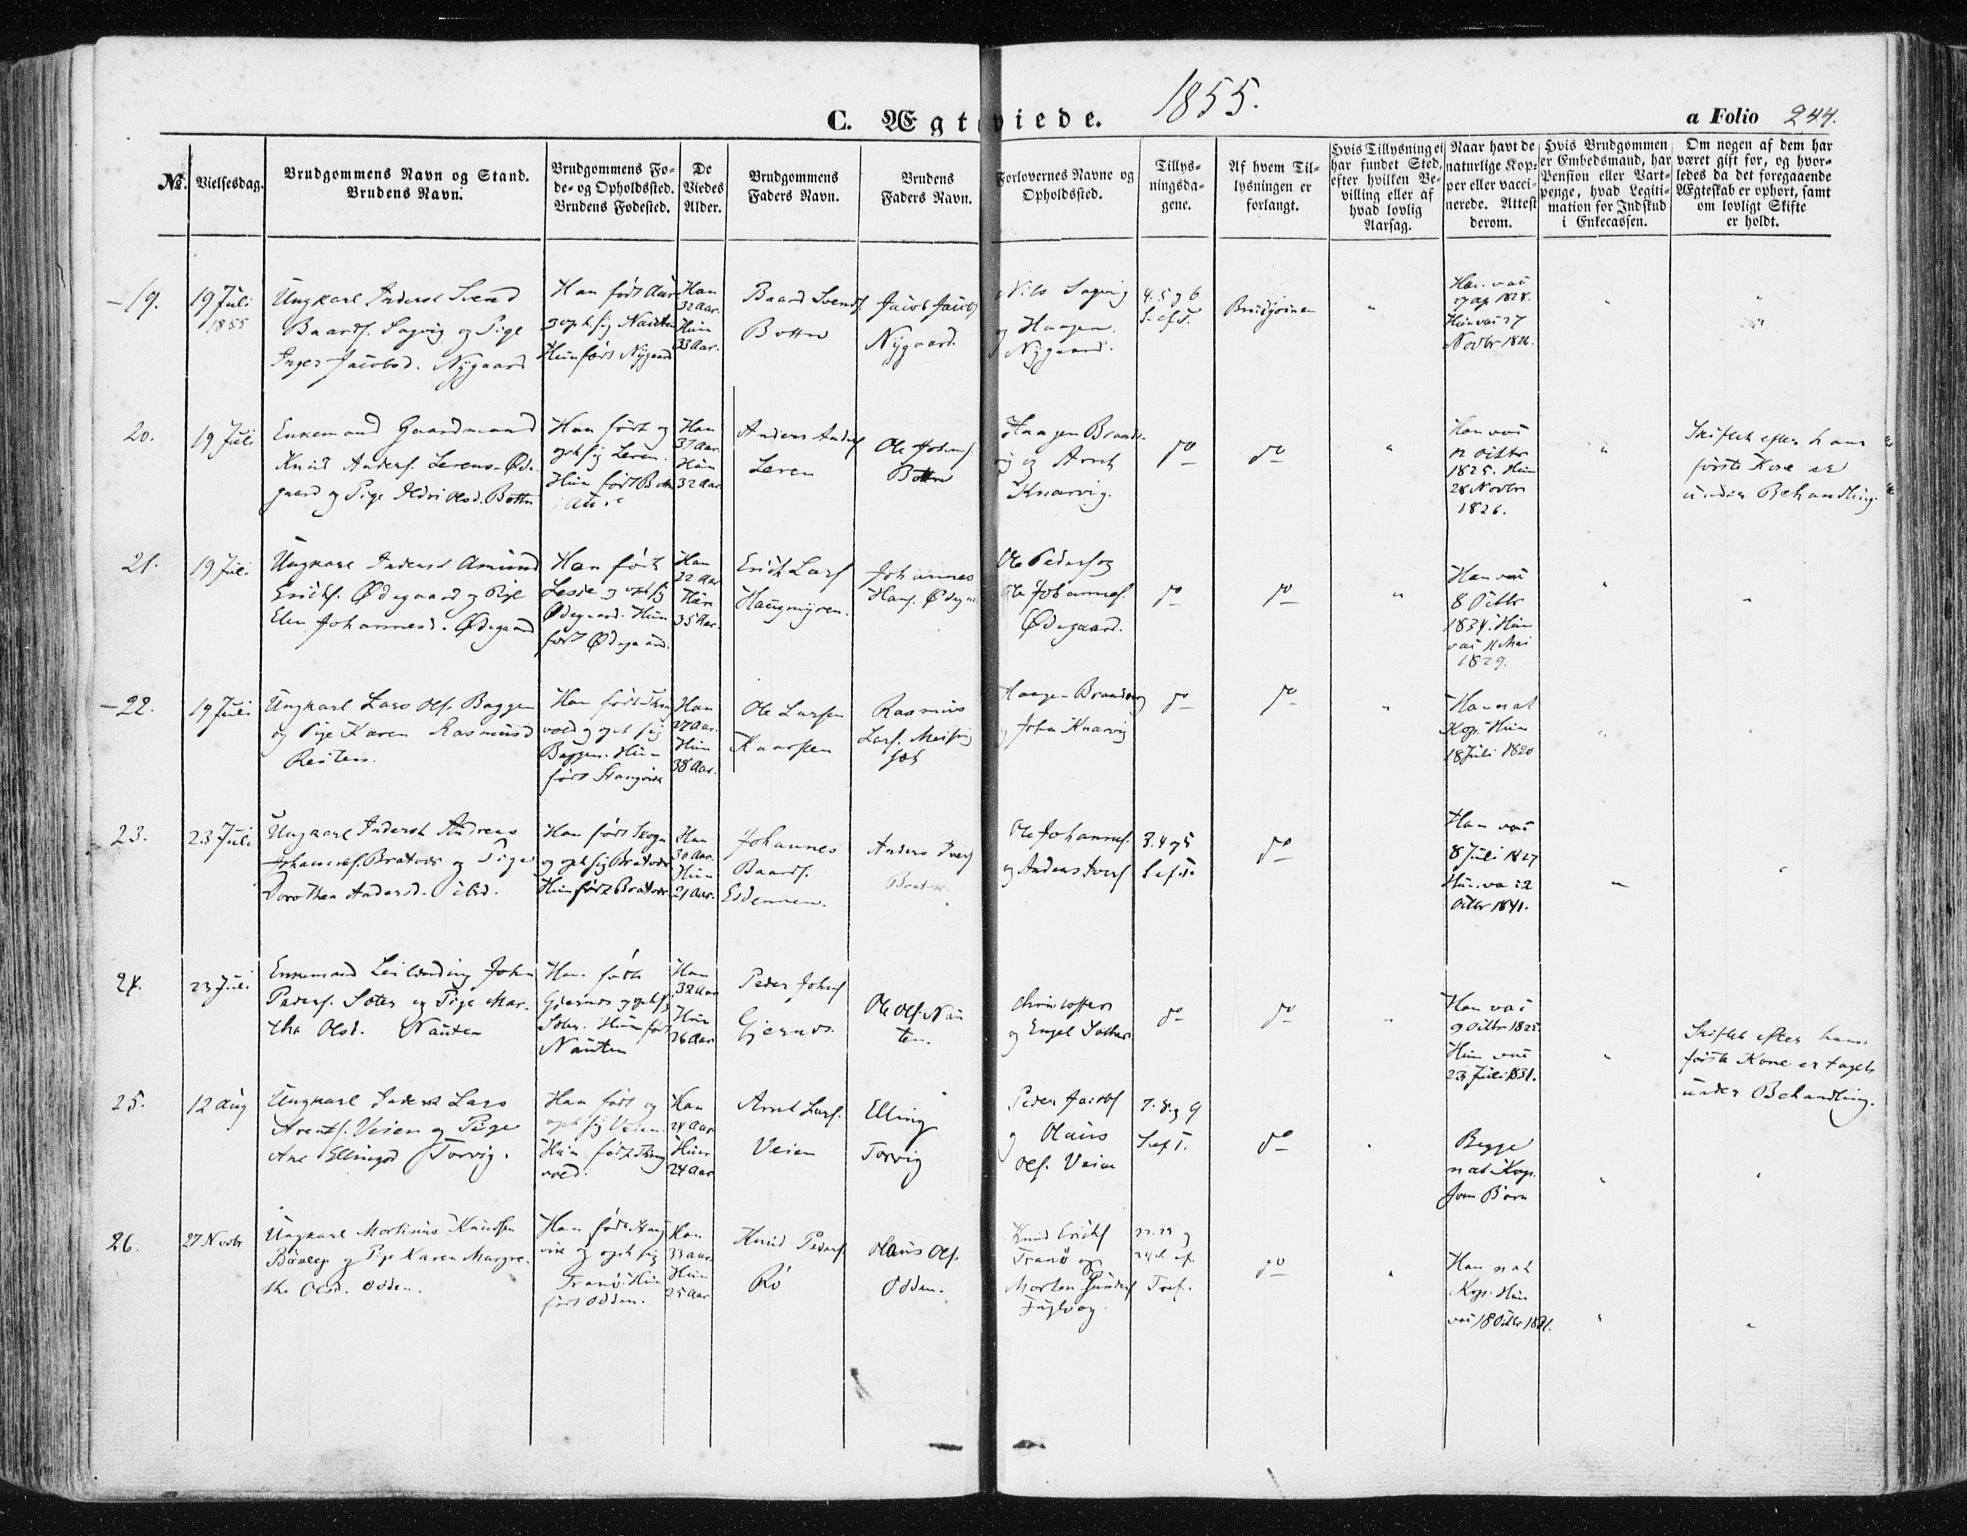 1855.
C. Ægteviede.
a Folio 244.
No. Vielsesdag.
Brudgommens Navn og Stand.
Brudens Navn.
Brudgommens Fo-
de- og Opholdssted.
Brudens Fødested.
De
Viedes
Alder.
Brudgommens
Faders Navn.
Brudens
Faders Navn.
Forlovernes Navne og
Opholdssted.
Tillys-
ningsda-
gene.
Af hvem Til-
lysningen er
forlangt.
Hvis Tillysning ei
har fundet Sted,
efter hvilken Be-
villing eller af
hvad lovlig
Aarsag.
Naar havt de
naturlige Kop-
per eller vacci-
nerede. Attest
derom.
Hvis Brudgommen
er Embedsmand, har
Pension eller Vart-
penge, hvad Legiti-
mation for Indskud
i Enkecassen.
Om nogen af dem har
været gift før, og hvor-
ledes da det foregaaende
Ægteskab er ophørt, samt
om lovligt Skifte
er holdt.
19.
19 Juli
1855
Ungkarl Svend
Baards. Sagvig og Pige
Inger Jacobsd. Nygaard
Han født
oph sig Nauten
Hun født Nygaard
Han
32 Aar.
Hun
33 Aar.
Baard Svends.
Botten
Jacob Jacobs.
Nygaard
Nils Sagvig
og Haagen
Nygaard.
4. 5 og 6
S. ef T.
Brudgommen
Han vac
1828.
Hun vac 27
Novbr 1826.
20.
19 Juli
Enkemand Gaardmand
Knud Anders. Leren-Øde-
gaard og Pige Ildri Olsd. Botten
Han født og
oph sig Leren.
Hun født Botten
Han
37 Aar.
Hun
32 Aar
Anders Anders
Leren
Ole Johns.
Botten
Haagen Brands-
vig og Arnt
Knarvig.
do
do
Han vac
12 Octbr
1825. Hun
28 Novbr
1826.
Skiftet efter hans
første Kone er
under Behandling.
21.
19 Juli
Ungkarl Amund
Erichs. Ødegaard og Pige
Elen Johannesd. Ødegaard
Han født
Lesje og oph sig
Ødegaard. Hun
født Ødegaard.
Han
22 Aar
Hun
35 Aar.
Erich Lars.
Haugmyren.
Johannes
Hans. Ødeg.
Ole Peders. og
Ole Johannes.
Ødegaard.
do
do
Han vac
8 Octbr
1834. Hun
vac 11 Mai
1829.
22.
19 Juli
Ungkarl Lars Ols. Baggen
og Pige Karen Rasmusd
Resten.
Han født Ting-
vold og oph sig
Baggen. Hun
født Stangvik
Han
27 Aar.
Hun
38 Aar.
Ole Larsen
Kaarsten
Rasmus
Lars.
Haagen Brandsvig
og John Knarvig
do
do
Han nat
Kop. Hun
18 Juli 1820
23.
23 Juli
Ungkarl Andreas
Johannes. Bratvær og Pige
Dorothea Andersd. ibid.
Han født
og oph sig Bratvær
Hun født Bratvær
Han
30 Aar.
Hun
21 Aar.
Johannes
Baards.
Anders Ivers
Bratvær.
Ole Johannes.
og Anders Ivers
3. 4 og 5
S. ef T.
do
Han vac
8 Juli 1827
Hun vac 2
Octbr 1841.
24.
23 Juli
Enkemand Leilænding John
Peders. Soter og Pige Mar-
tha Olsd. Nauten
Han født
Gjernes og oph sig
Soter. Hun født
Nauten
Han
32 Aar
Hun
26 Aar
Peder Johns
Gjernes.
Ole Ols. Nau
ten.
Christoffer
og Engel Sother
do
do
Han vac
9 Octbr 1825
Hun vac
23 Juli 1831.
Skiftet efter hans
første Kone er taget
under Behandling.
25.
12 Aug
Ungkarl Lars
Arents. Veien og Pige
Ane Ellingsd Torvig.
Han født og
oph sig Veien
Hun født Ting
vold.
Han
24 Aar
Hun
24 Aar
Arnt Lars.
Veien
Elling
Torvig
Peder Jacobs
og Olaus
Ols. Veien
7. 8. og 9
S ef T.
do
Begge
nat. Kop.
som Børn
26.
27 Novbr
Ungkarl Mortinus Knudsen
og Pige Karen Margre-
the Olsd. Odden.
Han født
og oph sig
Tranø. Hun
født Odden.
Han
33 Aar
Hun
25 Aar
Knud Peders
Rø
Olaus Ols.
Odden.
Knud Erichs
Tranø og
Morten Gunders
Fuglvog.
22. 23 og
24 S. ef.
Tref.
do
Han nat
Kop. Hun
vac 18 Octbr 1831.